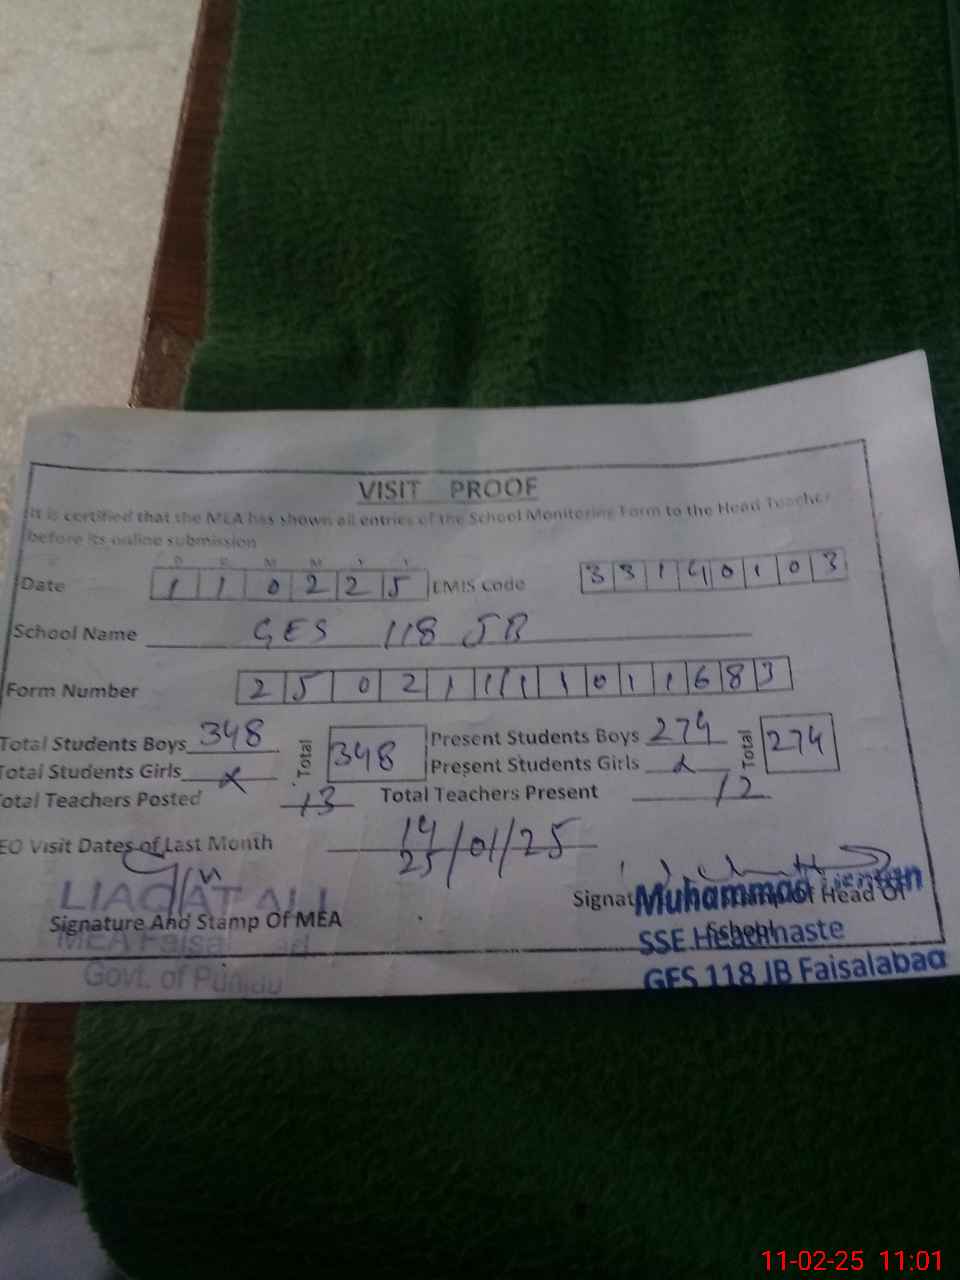 VISIT PROOF
It is certified that the MEA has shown all entries of the School Monitoring Form to the Head Teacher
before its online submission
D D M M Y Y
Date 1 1 0 2 2 5 EMIS Code 3 3 1 4 0 1 0 3
School Name GES 118 JB
Form Number 2 5 0 2 1 1 1 1 0 1 1 6 8 3
Total Students Boys 348 Total 348 Present Students Boys 274 Total 274
Total Students Girls x Present Students Girls x
Total Teachers Posted 13 Total Teachers Present 12
EO Visit Dates of Last Month 14/25/01/25
LIAQAT ALI
Signature And Stamp Of MEA
MEA Faisalabad
Govt. of Punjab
Signature And Stamp Of Head Of
School
Muhammad
SSE Headmaster
GES 118 JB Faisalabad
11-02-25 11:01